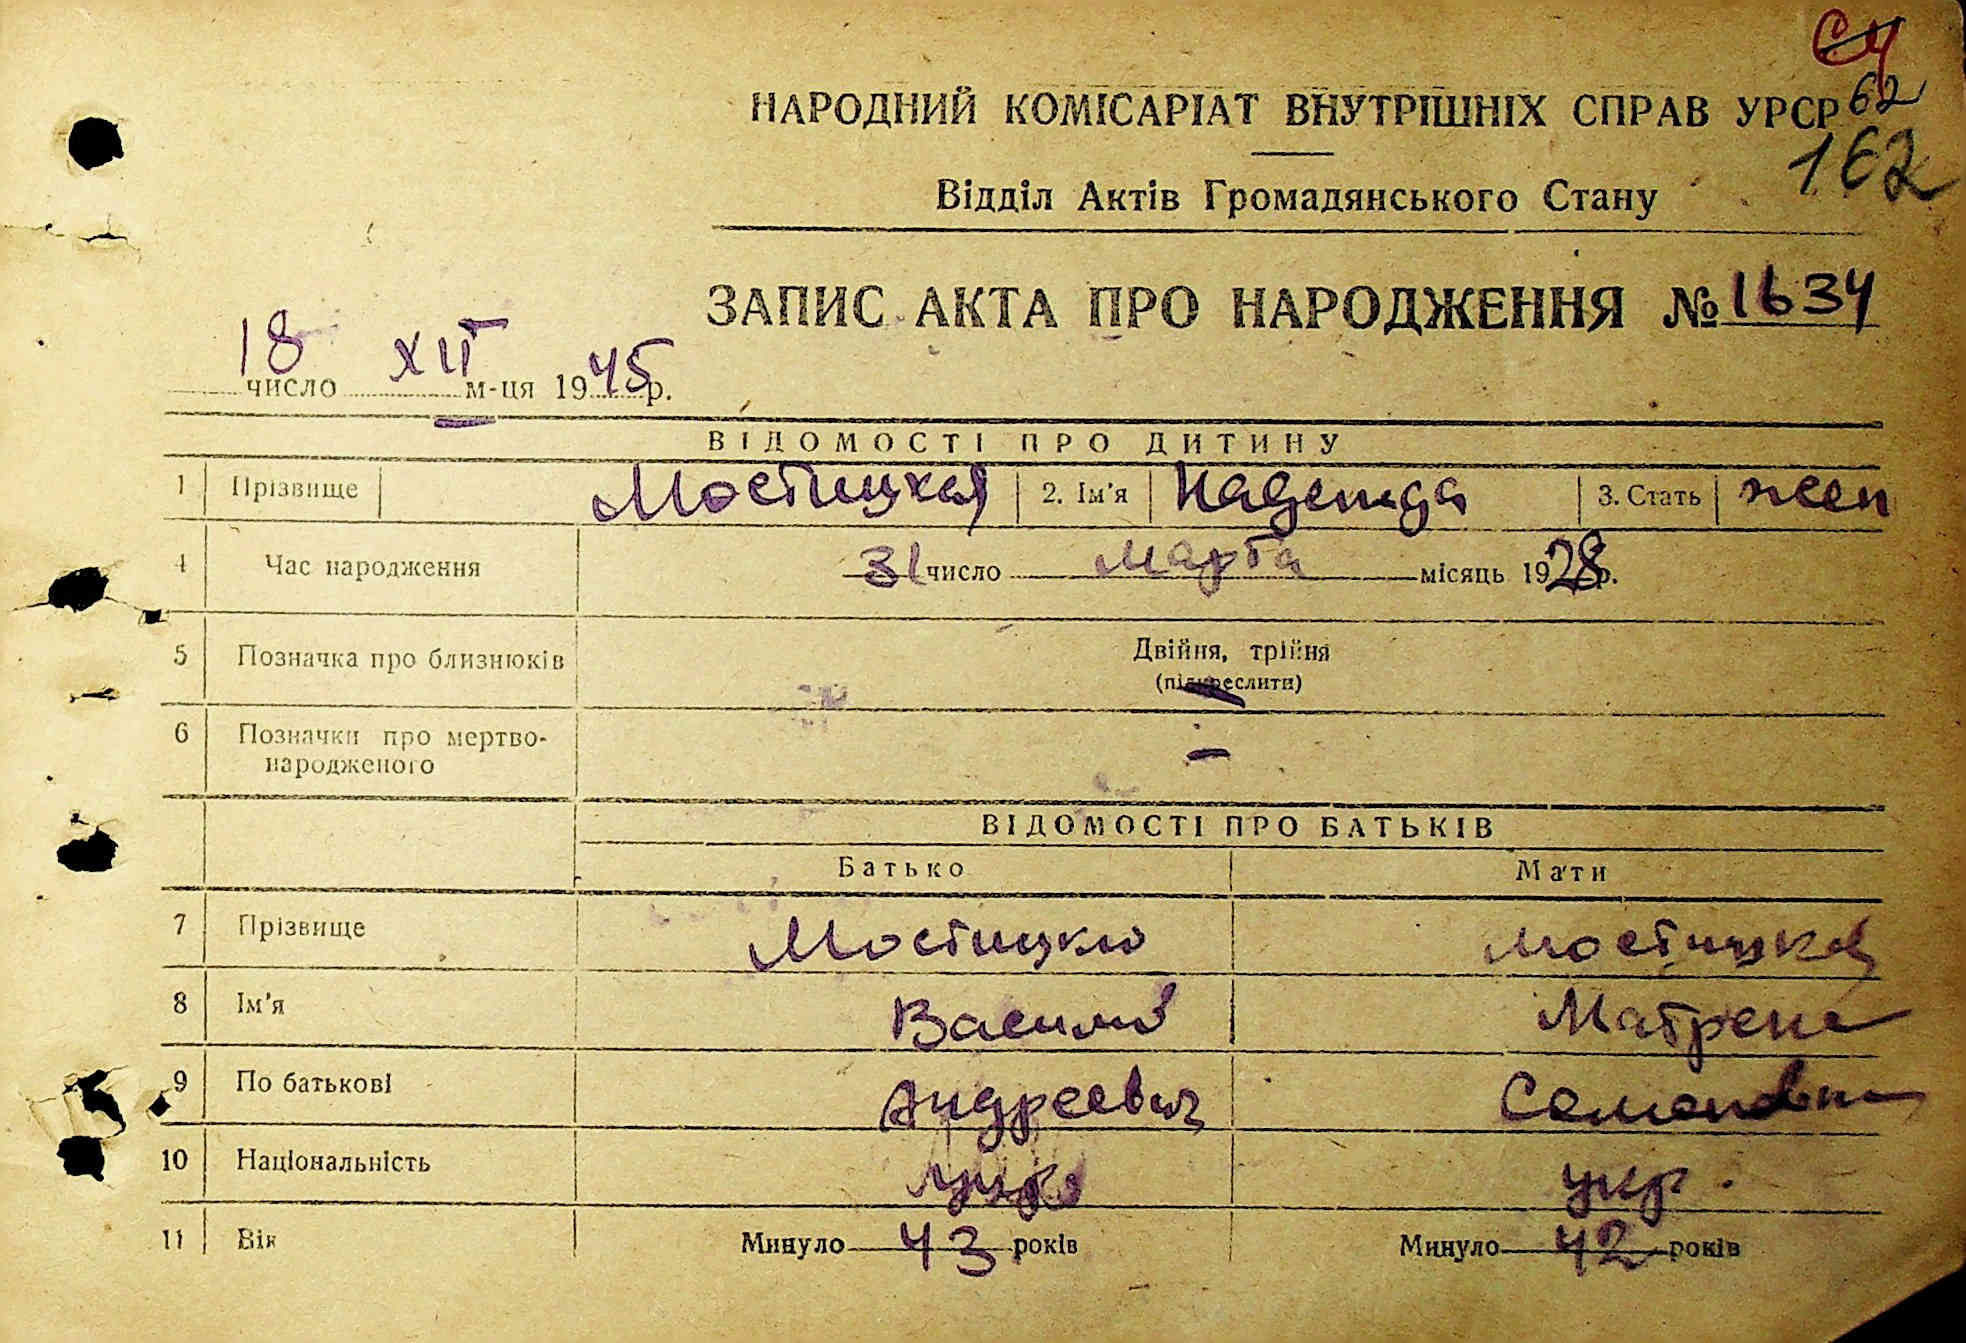 62
НАРОДНИЙ КОМІСАРІАТ ВНУТРІШНІХ СПРАВ УРСР
162
Відділ Актів Громадянського Стану
ЗАПИС АКТА ПРО НАРОДЖЕННЯ № 1634
18 число XII м-ця 1945 р.
ВІДОМОСТІ ПРО ДИТИНУ
1 Прізвище Мостицкая 2. Ім'я Надежда 3. Стать жен
4 Час народження 31 число марта місяць 1928 р.
5 Позначка про близнюків Двійня, трійня
(підкреслити) —
6 Позначки про мертво-
народженого —
ВІДОМОСТІ ПРО БАТЬКІВ
Батько Мати
7 Прізвище Мостицкий Мостицкая
8 Ім'я Василий Матрена
9 По батькові Андреевич Семеновна
10 Національність укр. укр.
11 Вік Минуло 43 років Минуло 42 років